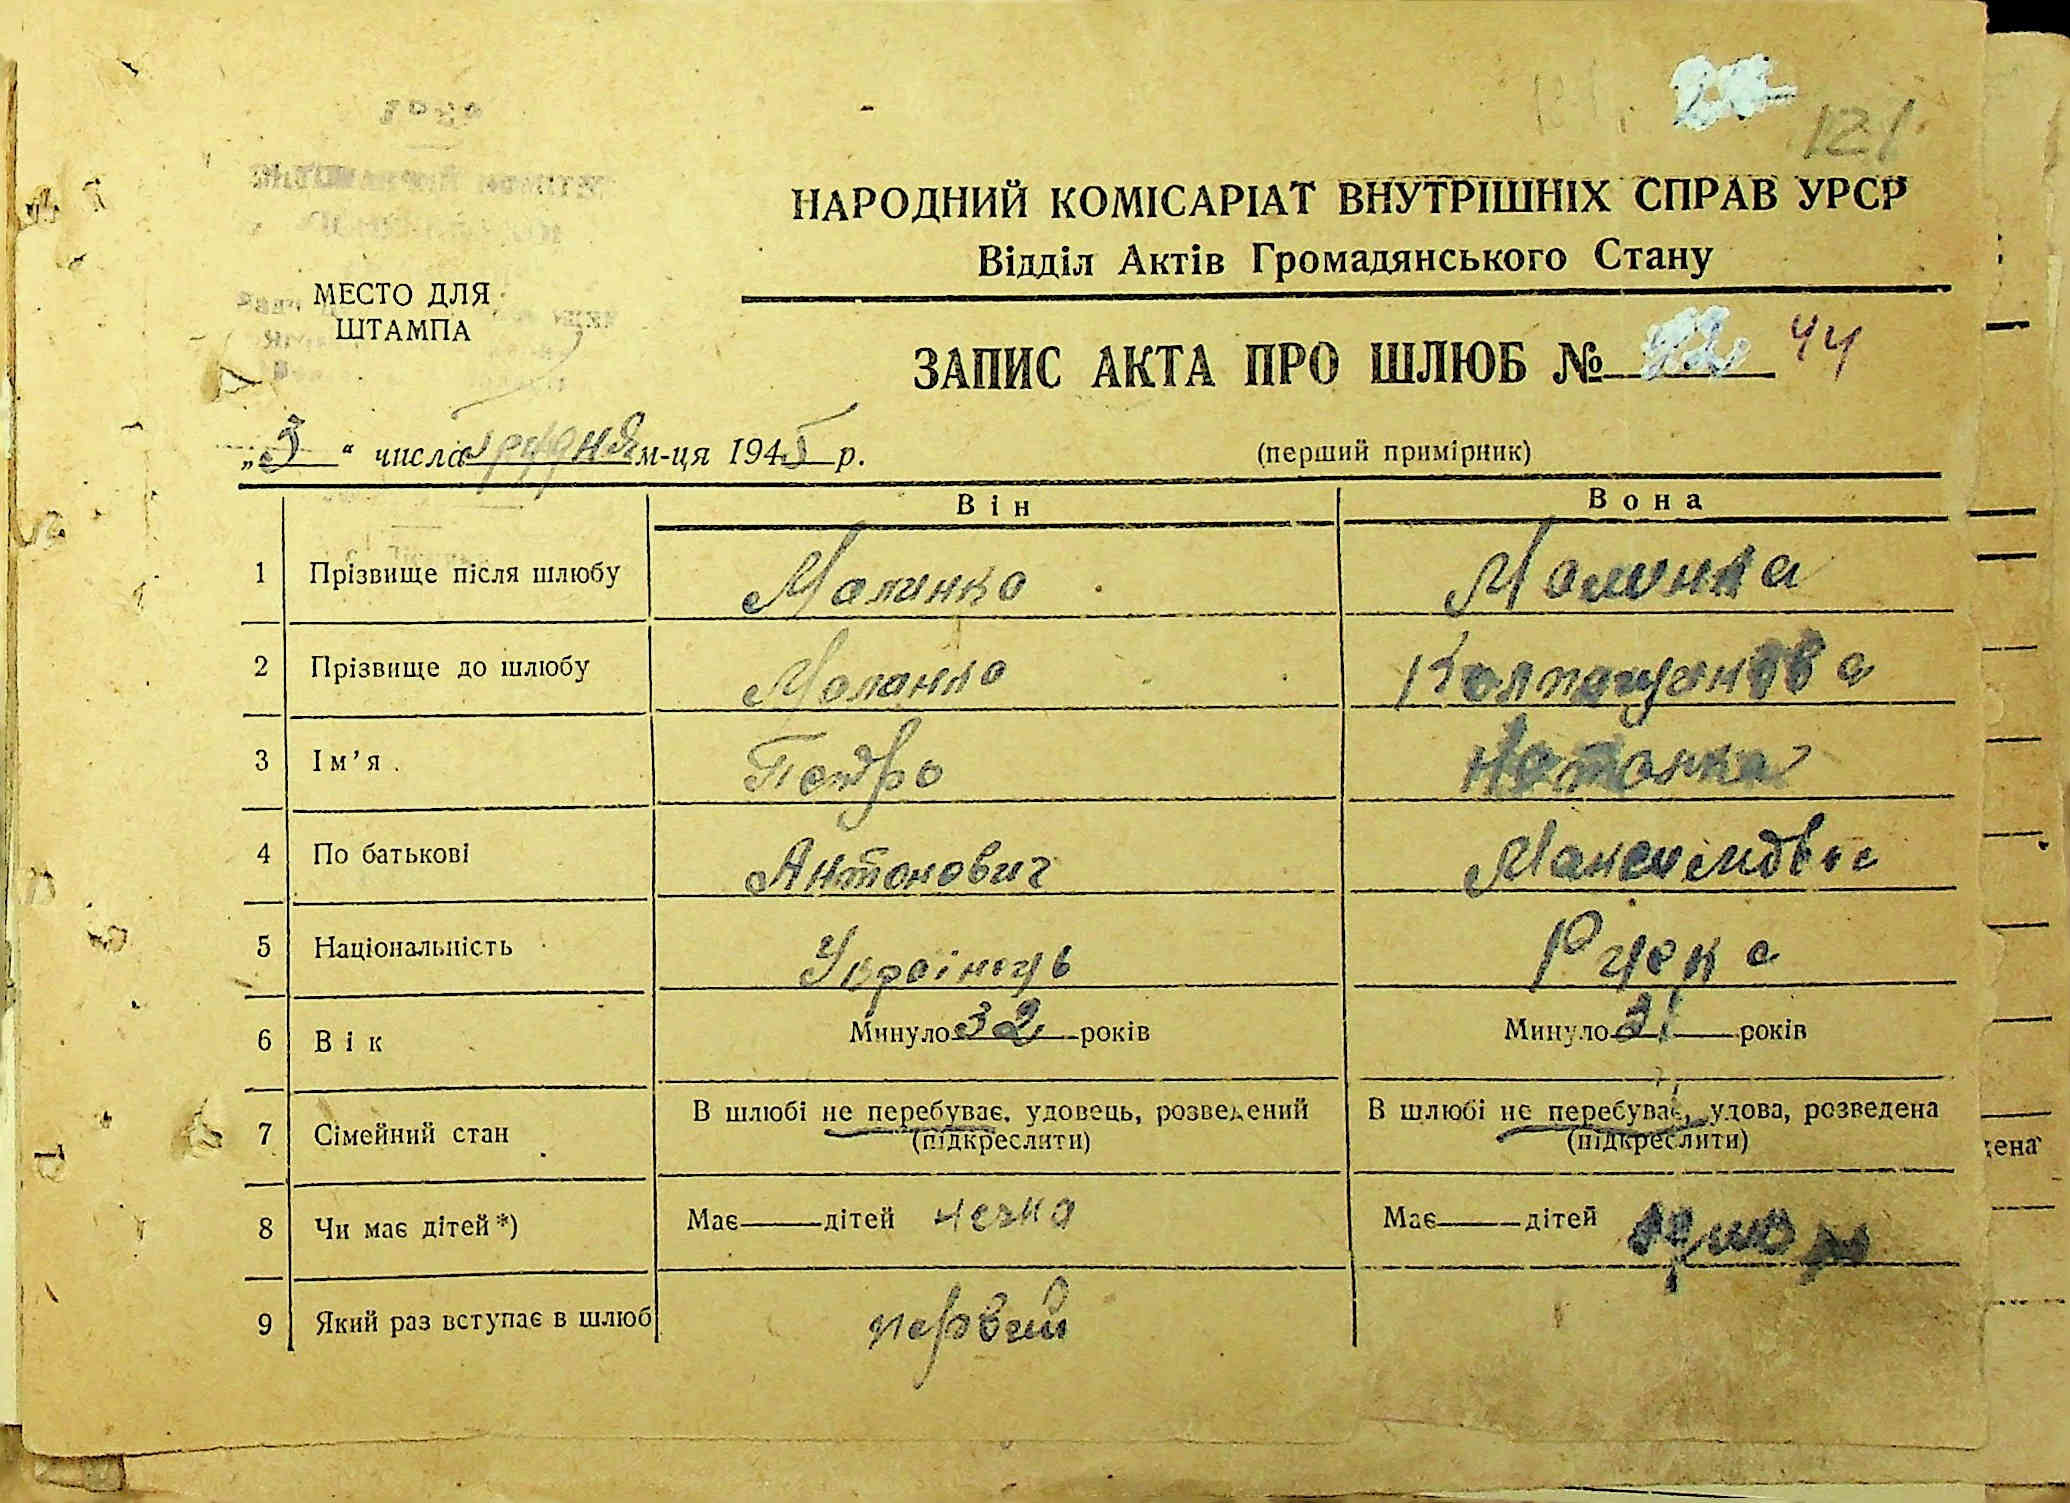 121
НАРОДНИЙ КОМІСАРІАТ ВНУТРІШНІХ СПРАВ УРСР
Відділ Актів Громадянського Стану
МЕСТО ДЛЯ
ШТАМПА
ЗАПИС АКТА ПРО ШЛЮБ № 44
„3“ числа грудня м-ця 1945 р.
(перший примірник)
Він Вона
1 Прізвище після шлюбу Малинка Малинка
2 Прізвище до шлюбу Малинка
3 Ім'я Петро Наталка
4 По батькові Антонович Максимовна
5 Національність Українець Руска
6 Вік Минуло 32 років Минуло 31 років
7 Сімейний стан В шлюбі не перебуває, удовець, розведений В шлюбі не перебуває, удова, розведена
(підкреслити) (підкреслити)
8 Чи має дітей*) Має дітей Має дітей
9 Який раз вступає в шлюб первий